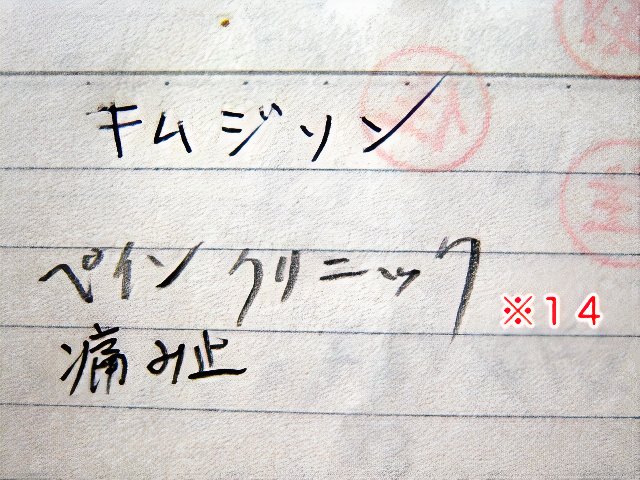 キムジソン
ペインクリニック
※14
痛み止